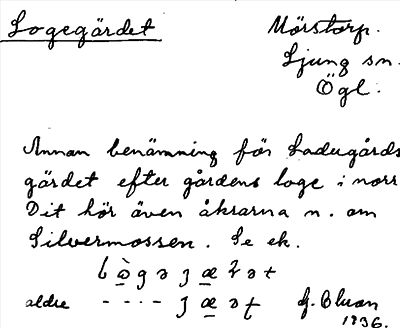 Logegärdet
Mörstorp.
Ljung sn.
Ögl.
Annan benämning för Ladugårds
gärdet efter gårdens loge i norr
Dit hör även åkrarna n. om
Silvermossen. Se ek.
äldre
1936.